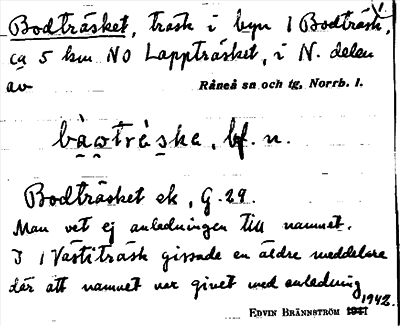 Bodträsket, träsk i byn 1 Bodträsk,
ca 5 km NO Lappträsket, i N. delen
av Råneå sn och tg, Norrb. l.
bf. n.
Bodträsket ek, G. 29.
Man vet ej anledningen till namnet.
I 1 Västiträsk gissade en äldre meddelare
där att namnet var givet med anledning
EDVIN BRÄNNSTRÖM 1941 1942.